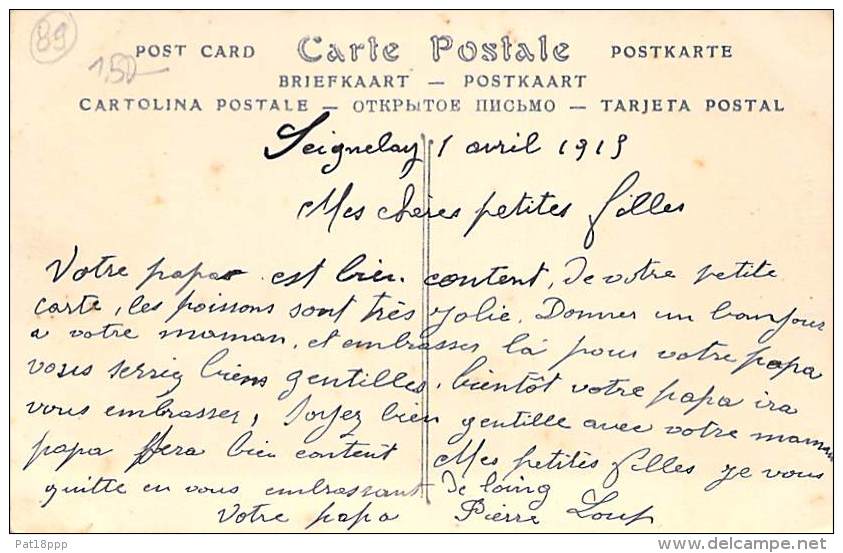 89
1,50
POST CARD Carte Postale POSTKARTE
BRIEFKAART — POSTKAART
CARTOLINA POSTALE — ОТКРЫТОЕ ПИСЬМО — TARJETA POSTAL
Seignelay 1 avril 1915
Mes chères petites filles
Votre papa est bien content, de votre petite
carte, les poissons sont très jolie. Donner un bonjour
a votre maman, et embrasser là pour votre papa
vous serriez biens gentilles, bientôt votre papa ira
vous embrasser, soyez bien gentille avec votre maman
papa sera bien content Mes petites filles je vous
quitte en vous embrassant de loing
Votre papa Pierre Loup
Pat18ppp
delcampe.net